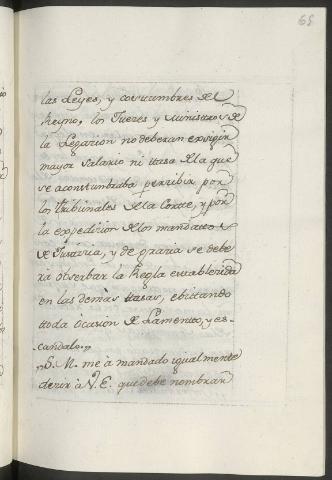 65
las Leyes, y costumbres del
Reyno, los Jueces y Ministros de
la Legacion no deberan exsigir
mayor salario ni ttasa de la que
se acostumbraba percibir por
los tribunales de la Corte, y por
la expedicion de los mandattos
de Justicia, y de gracia se debe
ra observar la Regla establecida
en las demás ttasas, ebittando
ttoda ocasion de Lamento, y es-
candalo.„
„S. M. me à mandado igualmente
decir à V. E. que debe nombrar